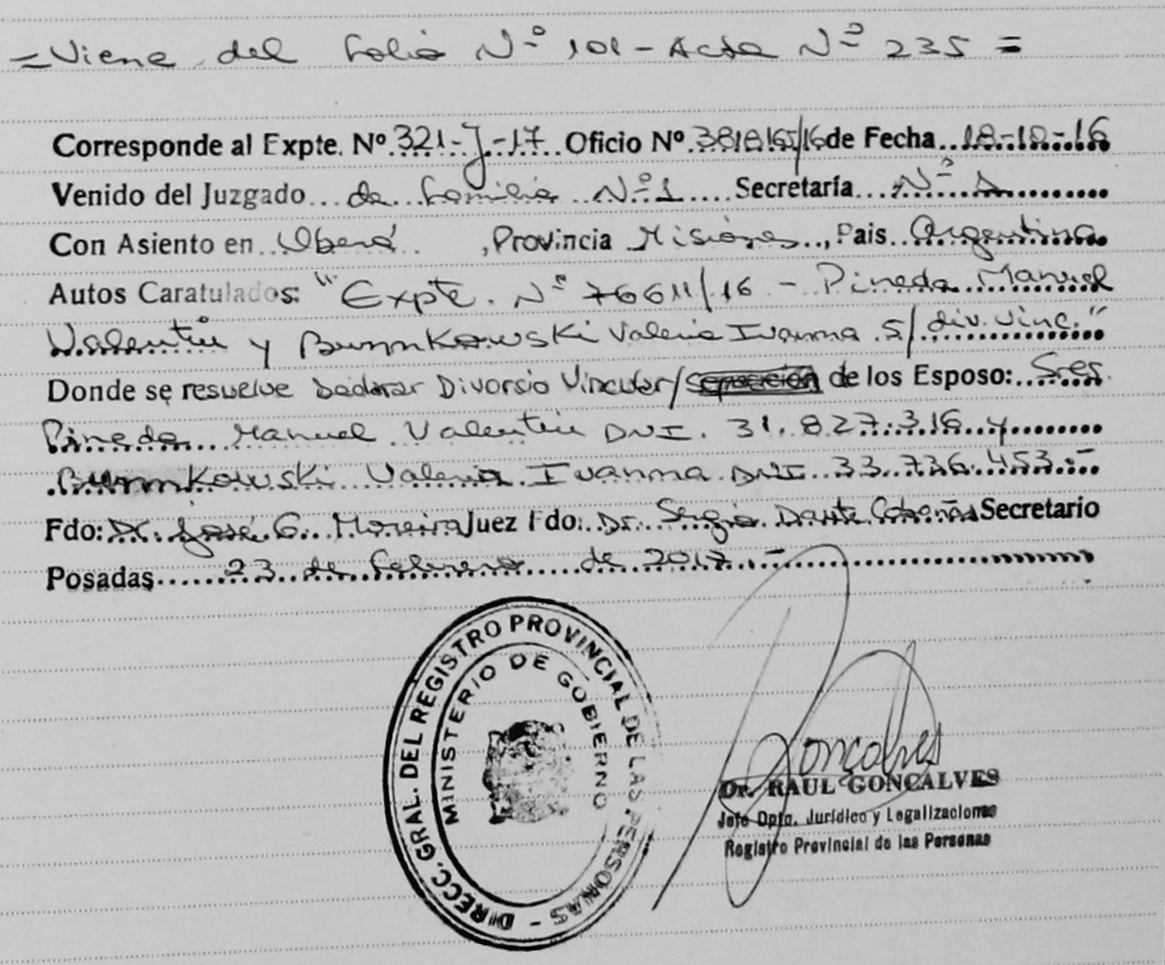 = Viene del Folio Nº 101 - Acta Nº 235 =
Corresponde al Expte. Nº 321-J-17 Oficio Nº 3818165/16 de Fecha 18-10-16
Venido del Juzgado de Familia Nº 1 Secretaría Nº
Con Asiento en Oberá, Provincia Misiones, Pais Argentina
Autos Caratulados: "Expte. Nº 76611/16 - Pineda Manuel
Valentin y Valeria Ivanna S/ div. vinc."
Donde se resuelve Declarar Divorsio Vincular/ de los Esposo: Sres.
Pineda Manuel Valentin DNI. 31.827.316 y
Valeria Ivanna DNI 33.736.453.-
Fdo: Dr. José G. Moreira Juez Fdo: Dr. Sergio Dante Secretario
Posadas 23 de Febrero de 2017.-
DIRECC. GRAL. DEL REGISTRO PROVINCIAL DE LAS PERSONAS -
MINISTERIO DE GOBIERNO
Goncalves
Dr. RAUL GONCALVES
Jefe Dpto. Jurídico y Legalizaciones
Registro Provincial de las Personas